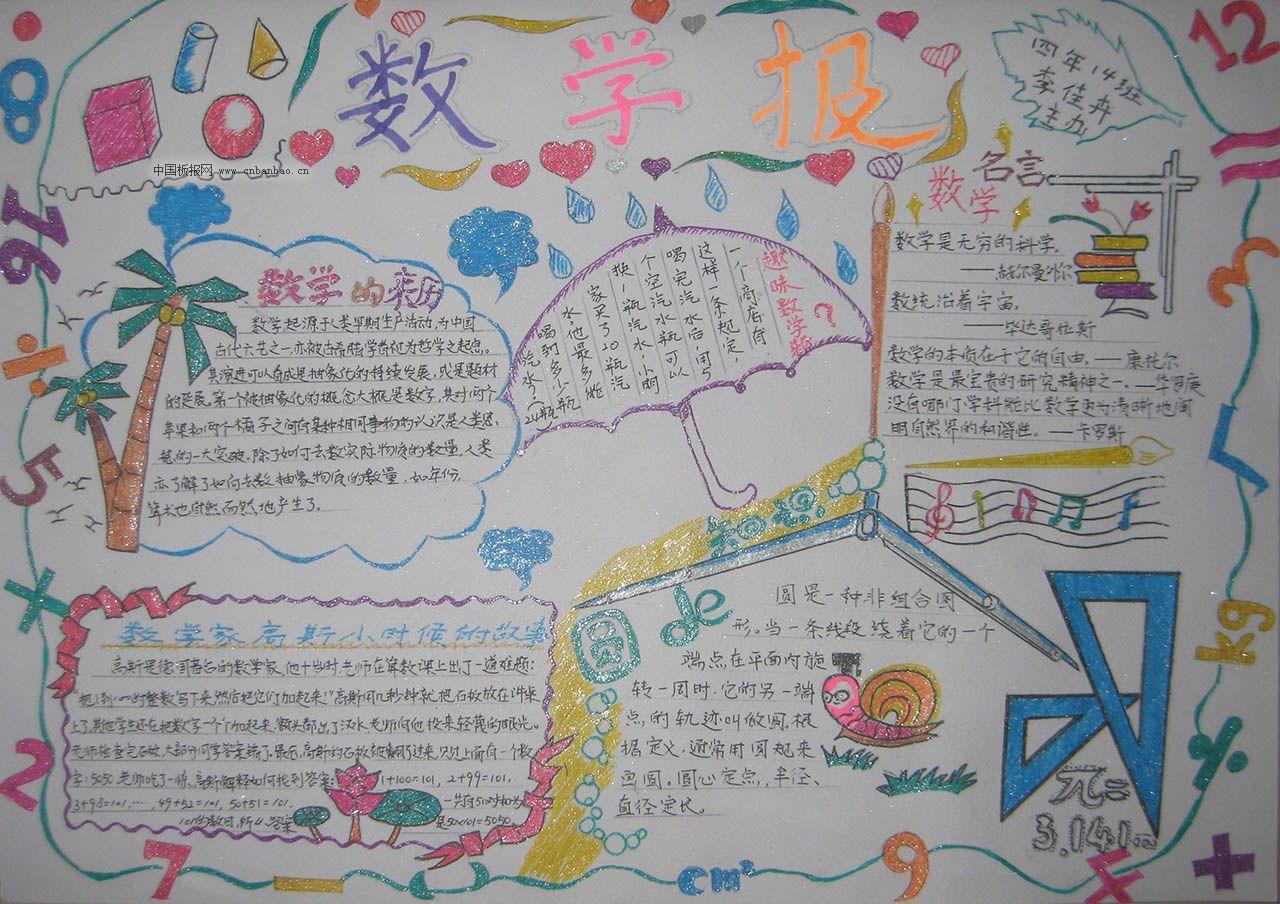 数学报
四年14班
李佳卉
主办
中国板报网 www.cnbanbao.cn
数学的来历
数学起源于人类早期生产活动,为中国
古代六艺之一,亦被古希腊学者视为哲学之起点。
其演进可以看成是抽象化的持续发展,或是题材
的延展,第一个被抽象化的概念大概是数字,其对两个
苹果和两个橘子之间有某种相同事物的认识是人类思
想的一大突破,除了如何去数实际物质的数量,人类
亦了解了如何去数抽象物质的数量,如年份,
算术也自然而然地产生了。
趣味数学
?
一个商店有
这样一条规定
喝完汽水后,用5
个空汽水瓶可以
换一瓶汽水,小明
家买了20瓶汽
水,他最多能
喝到多少瓶
汽水(24瓶
数学名言
数学是无穷的科学。
——赫尔曼外尔
数统治着宇宙。
——毕达哥拉斯
数学的本质在于它的自由。——康托尔
数学是最宝贵的研究精神之一。——华罗庚
没有哪门学科能比数学更为清晰地阐
明自然界的和谐性。——卡罗斯
数学家高斯小时候的故事
高斯是德国著名的数学家,他十岁时,老师在算数课上出了一道难题:
"把1到100的整数写下来,然后把它们加起来!"高斯可几秒钟就把石板放在讲桌
上了,其他学生还在把数字一个个加起来,额头都出了汗水,老师向他投来轻蔑的眼光。
老师检查完石板,大部分同学答案错了,最后,高斯的石板被翻了过来,只见上面有一个数
字:5050,老师吃了一惊,高斯解释如何找到答案:1+100=101,2+99=101,
3+98=101,……,49+52=101,50+51=101,一共有50对和为
101的数目,所以答案是50×101=5050。
圆de
圆是一种非组合图
形。当一条线段绕着它的一个
端点在平面内旋
转一周时,它的另一端
点的轨迹叫做圆,根
据定义,通常用圆规来
画圆。圆心定点,半径、
直径定长。
π=
3.141
8
16
÷
5
×
2
7
cm²
9
+
÷
kg
√
3
=
12